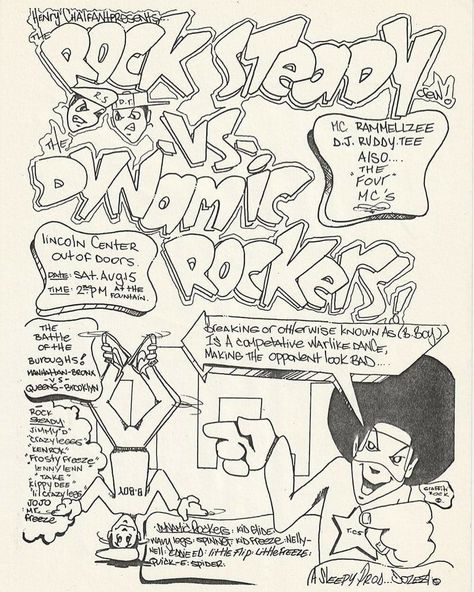 "Henry" Chalfant Presents...
the
Rock Steady
crew!
R.S D.T
-VS-
the
Dynamic
Rockers!!
MC RAMMELLZEE
D.J. RUDDY TEE
ALSO....
THE
"FOUR"
MC'S
Lincoln Center
out of Doors.
DATE: SAT. Aug 15
TIME: 2:00 P.M AT the
FOUNTAIN.
THE
BATTLE
OF THE
BUROUGHS!
MANHATTAN-BRONX
-VS-
QUEENS-BROOKLYN
Breaking or otherwise known as (B.BOY)
Is a competative warlike Dance,
making the opponent look BAD....
ROCK
STEADY
JIMMY D"
"crazy leggs"
"KENROK"
"Frosty Freeze"
"LENNY LENN
"TAKE"
"Kippy Dee"
"lil crazy legs
JOJO
Mr.
Freeze
B-BOY
DYNAMIC Rockers: KID Glide
wavy legs: SPINNER KID Freeze: Nelly-
Nell: EDNEED: little Flip: Little FREEZE:
QUICK-E: SPIDER.
GRAFFITI
ROCK
TCS
A Sleepy Prod...